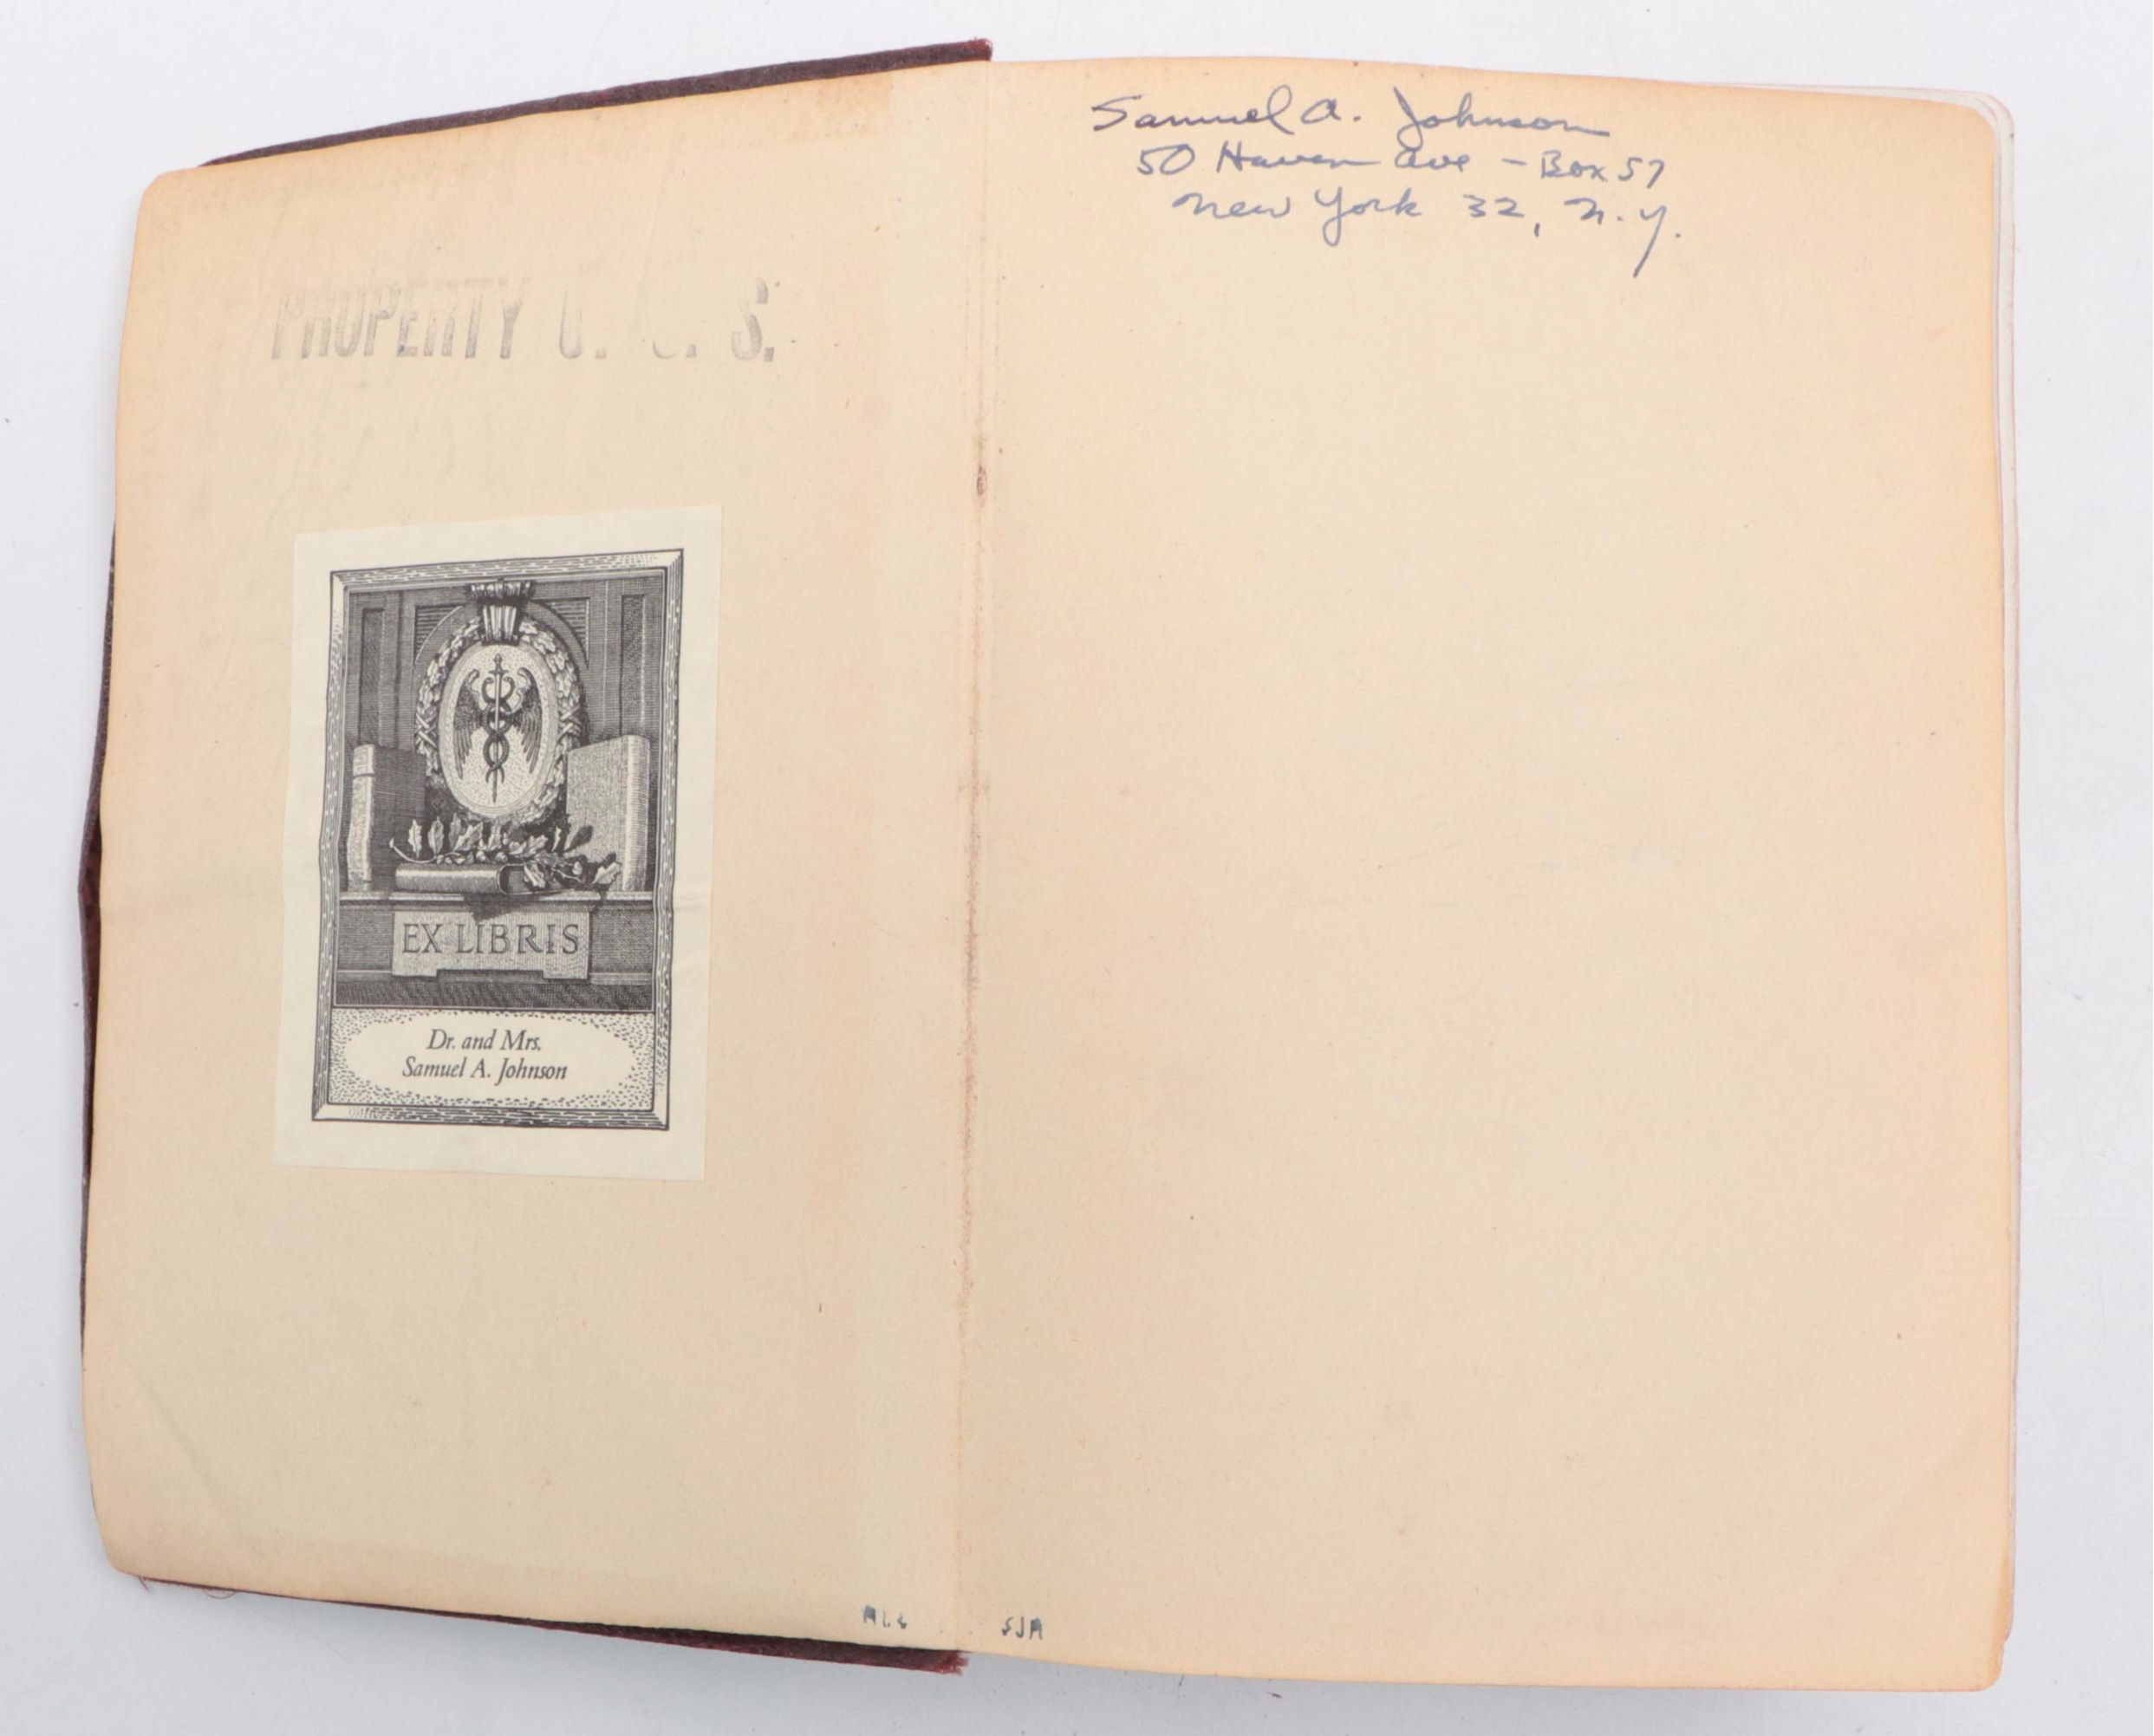 PROPERTY U. S.
EX LIBRIS
Dr. and Mrs.
Samuel A. Johnson
Samuel A. Johnson
50 Haven Ave - Box 57
New York 32, N.Y.